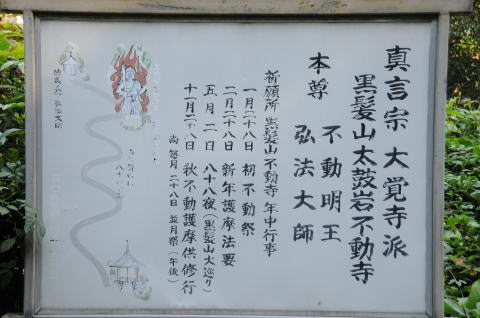 真言宗 大覚寺派
黒髪山太鼓岩不動寺
本尊 不動明王
弘法大師
祈願所 黒髪山不動寺 年中行事
一月二十八日 初不動祭
二月二十八日 新年護摩法要
五月二日 八十八夜(黒髪山大巡り)
十一月二十八日 秋不動護摩供修行
尚 毎月二十八日 並月祭(午後)
弘法大師